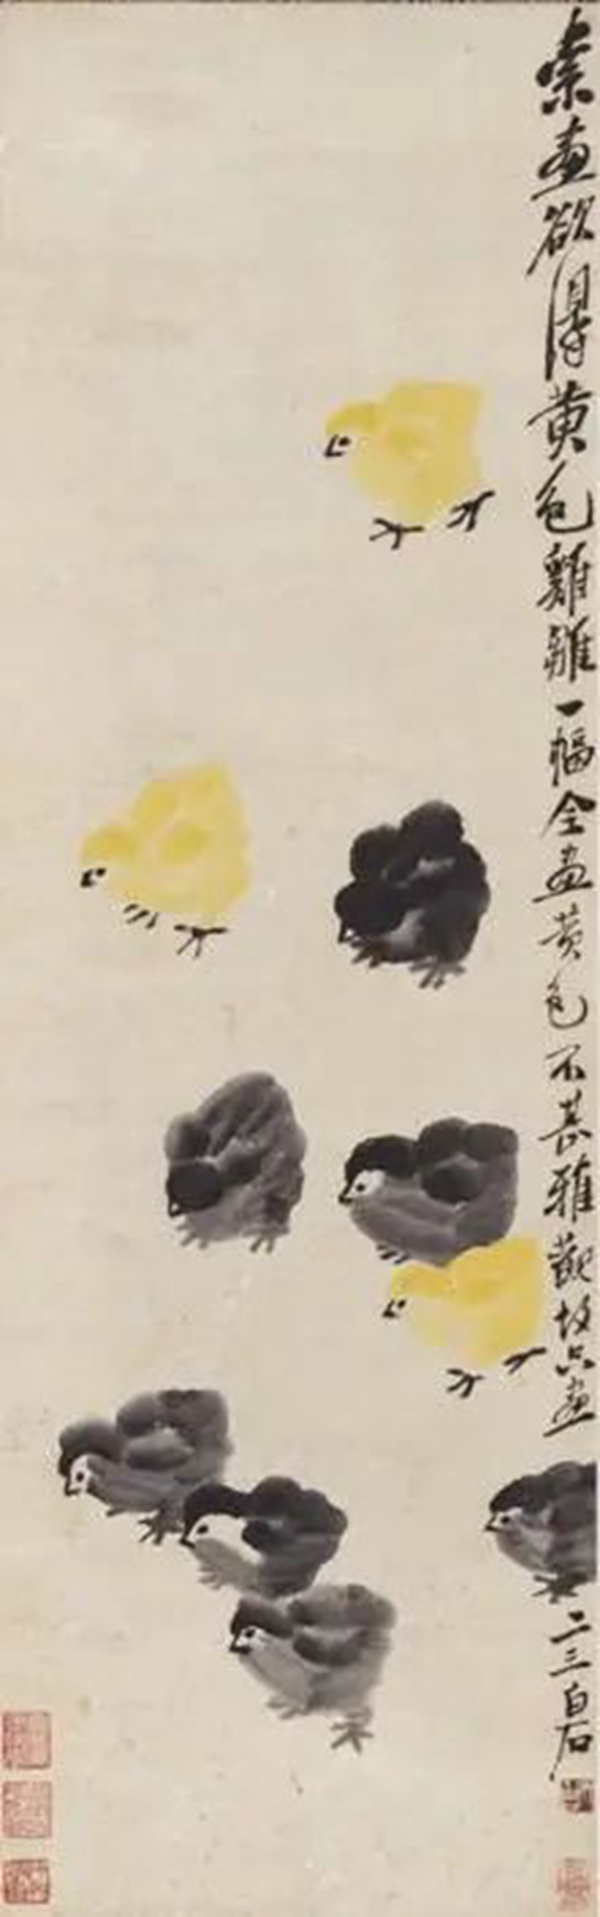 索畫欲得黄色雞雛一幅全畫黄色不甚雅觀故只畫
二三白石